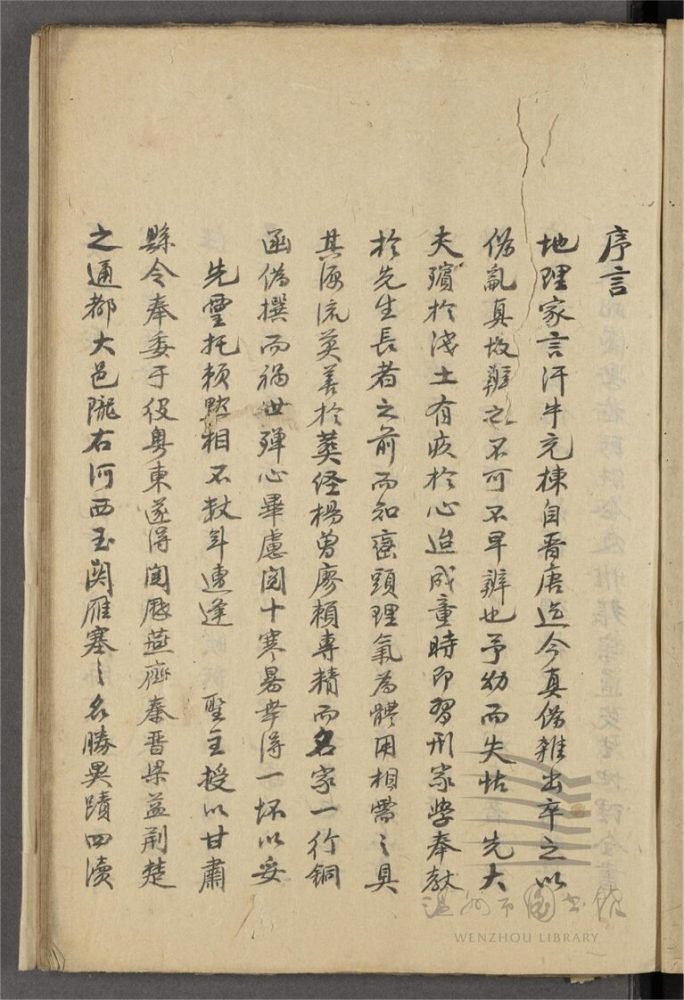 序言
地理家言汗牛充棟自晋唐迄今真偽雜出卒之以
偽亂真故辨之不可不早辨也予幼而失怙先大
夫殯於淺土有疚於心迨成童時即習形家學奉教
於先生長者之前而知巒頭理氣為體用相需之具
其海流英善於葬經楊曽廖賴專精而名家一行銅
函偽撰而禍世殫心畢慮閱十寒暑幸得一坏以妥
先靈托賴默相不数年遭逢聖主授以甘肅
縣令奉委于役粤東遂得閲歴燕齊秦晋梁益荆楚
之通都大邑隴右河西玉関雁塞之名勝異蹟四瀆
温州市圖書館
WENZHOU LIBRARY